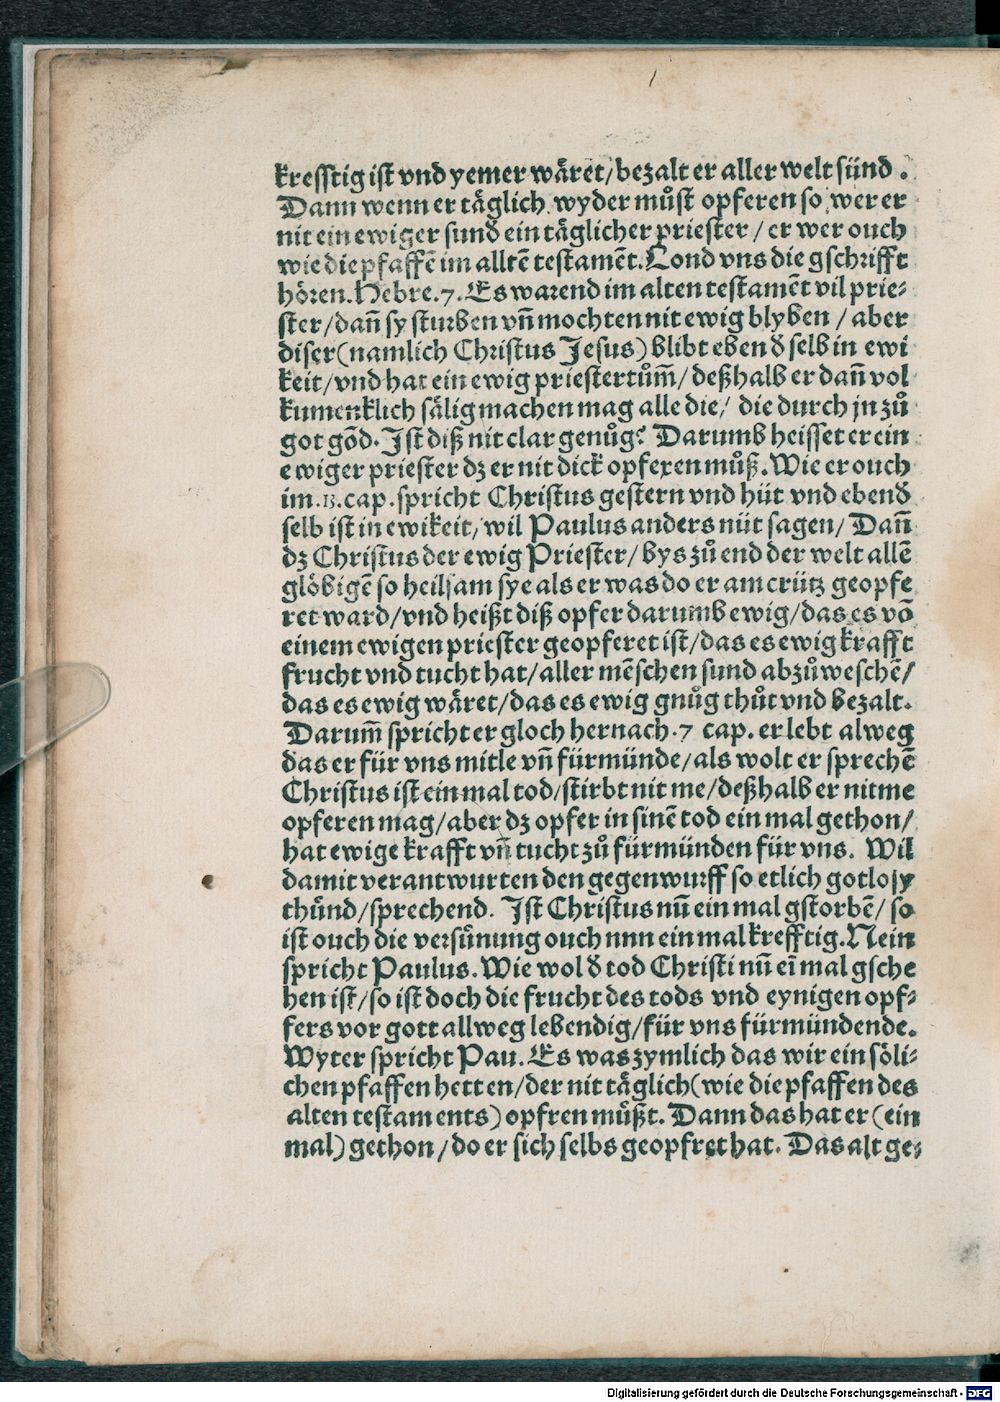 krefftig ist vnd yemer wåret/bezalt er aller welt sünd.
Dann wenn er täglich wyder můst opferen so wer er
nit ein ewiger sund ein täglicher priester/er wer ouch
wie die pfaffē im alltē testamēt. Lond vns die gschrifft
hören. Hebre.7. Es warend im alten testamēt vil prie⸗
ster/dañ sy sturben vñ mochten nit ewig blyben/aber
diser(namlich Christus Jesus)blibt ebend selb in ewi
keit/vnd hat ein ewig priestertům̃/deßhalb er dañ vol
kumenklich sälig machen mag alle die/die durch jn zů
got gōd. Ist diß nit clar genůg? Darumb heisset er ein
ewiger priester dz er nit dick opferen můß. Wie er ouch
im.13.cap.spricht Christus gestern vnd hüt vnd ebend
selb ist in ewikeit/wil Paulus anders nüt sagen/Dañ
dz Christus der ewig Priester/bys zů end der welt allē
glöbigē so heilsam sye als er was do er am crütz geopfe
ret ward/vnd heißt diß opfer darumb ewig/das es vō
einem ewigen priester geopferet ist/das es ewig krafft
frucht vnd tucht hat/aller mēschen sund abzůweschē/
das es ewig wäret/das es ewig gnůg thůt vnd bezalt.
Darum̃ spricht er gloch hernach.7 cap. er lebt alweg
das er für vns mitle vñ fürmünde/als wolt er sprechē
Christus ist ein mal tod/stirbt nit me/deßhalb er nitme
opferen mag/aber dz opfer in sinē tod ein mal gethon/
hat ewige krafft vñ tucht zů fürmünden für vns. Wil
damit verantwurten den gegenwurff so etlich gotlosy
thůnd/sprechend. Ist Christus nū ein mal gstorbē/so
ist ouch die versůnung ouch nnn ein mal krefftig. Nein
spricht Paulus. Wie wol d tod Christi nū eī mal gsche
hen ist/so ist doch die frucht des tods vnd eynigen opf⸗
fers vor gott allweg lebendig/für vns fürmündende.
Wyter spricht Pau. Es was zymlich das wir ein söli⸗
chen pfaffen hetten/der nit täglich(wie die pfaffen des
alten testaments)opfren můßt. Dann das hat er(ein
mal)gethon/do er sich selbs geopfret hat. Das alt ge⸗
Digitalisierung gefördert durch die Deutsche Forschungsgemeinschaft - DFG